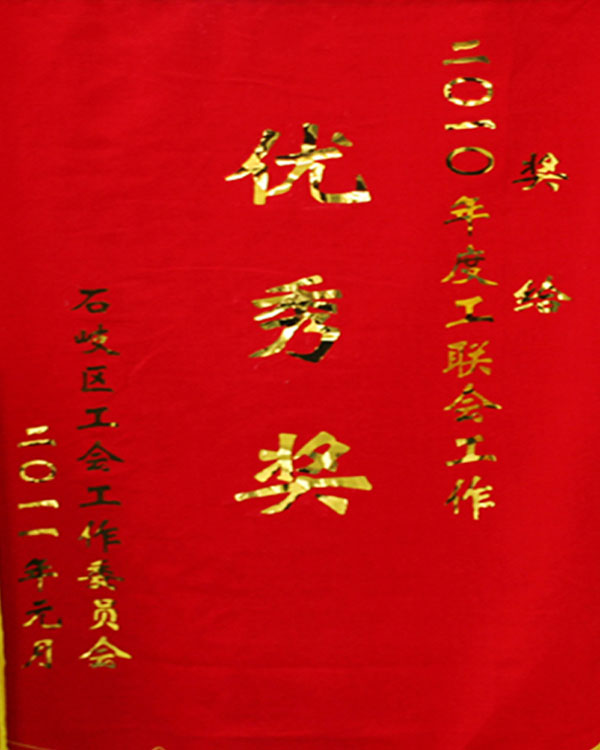 奖给
二〇一〇年度工联会工作
优秀奖
石岐区工会工作委员会
二〇一一年元月